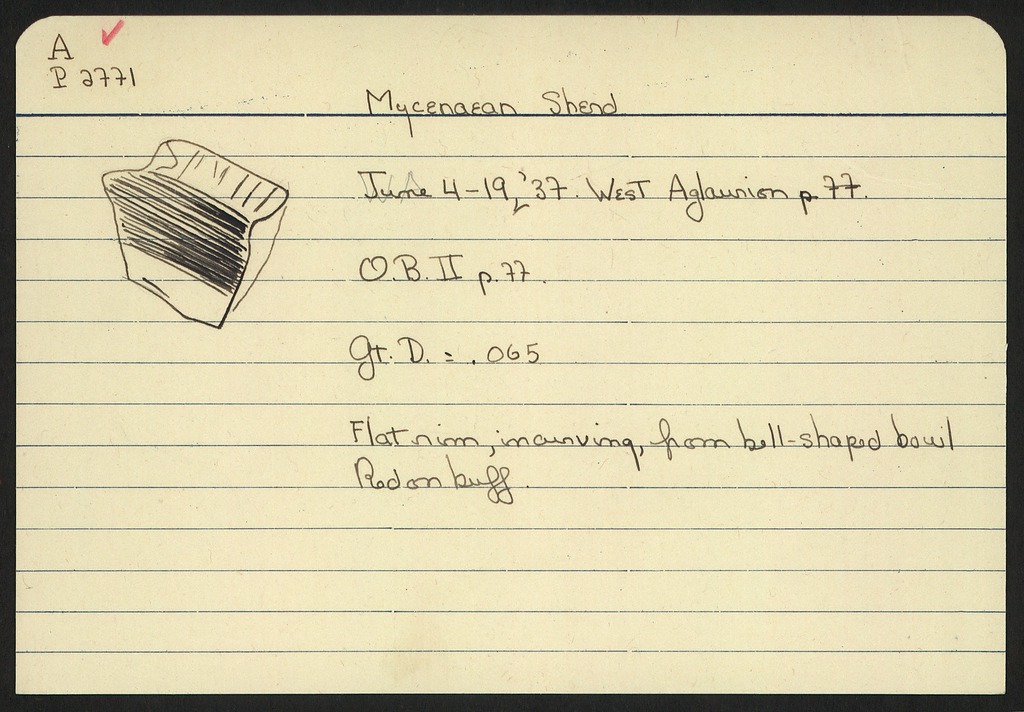 A
P 2771
Mycenaean Sherd
June 4-19, '37. West Aglaurion p. 77.
O.B. II p. 77.
Gt. D. = .065
Flat rim, incurving, from bell-shaped bowl
Red on buff.